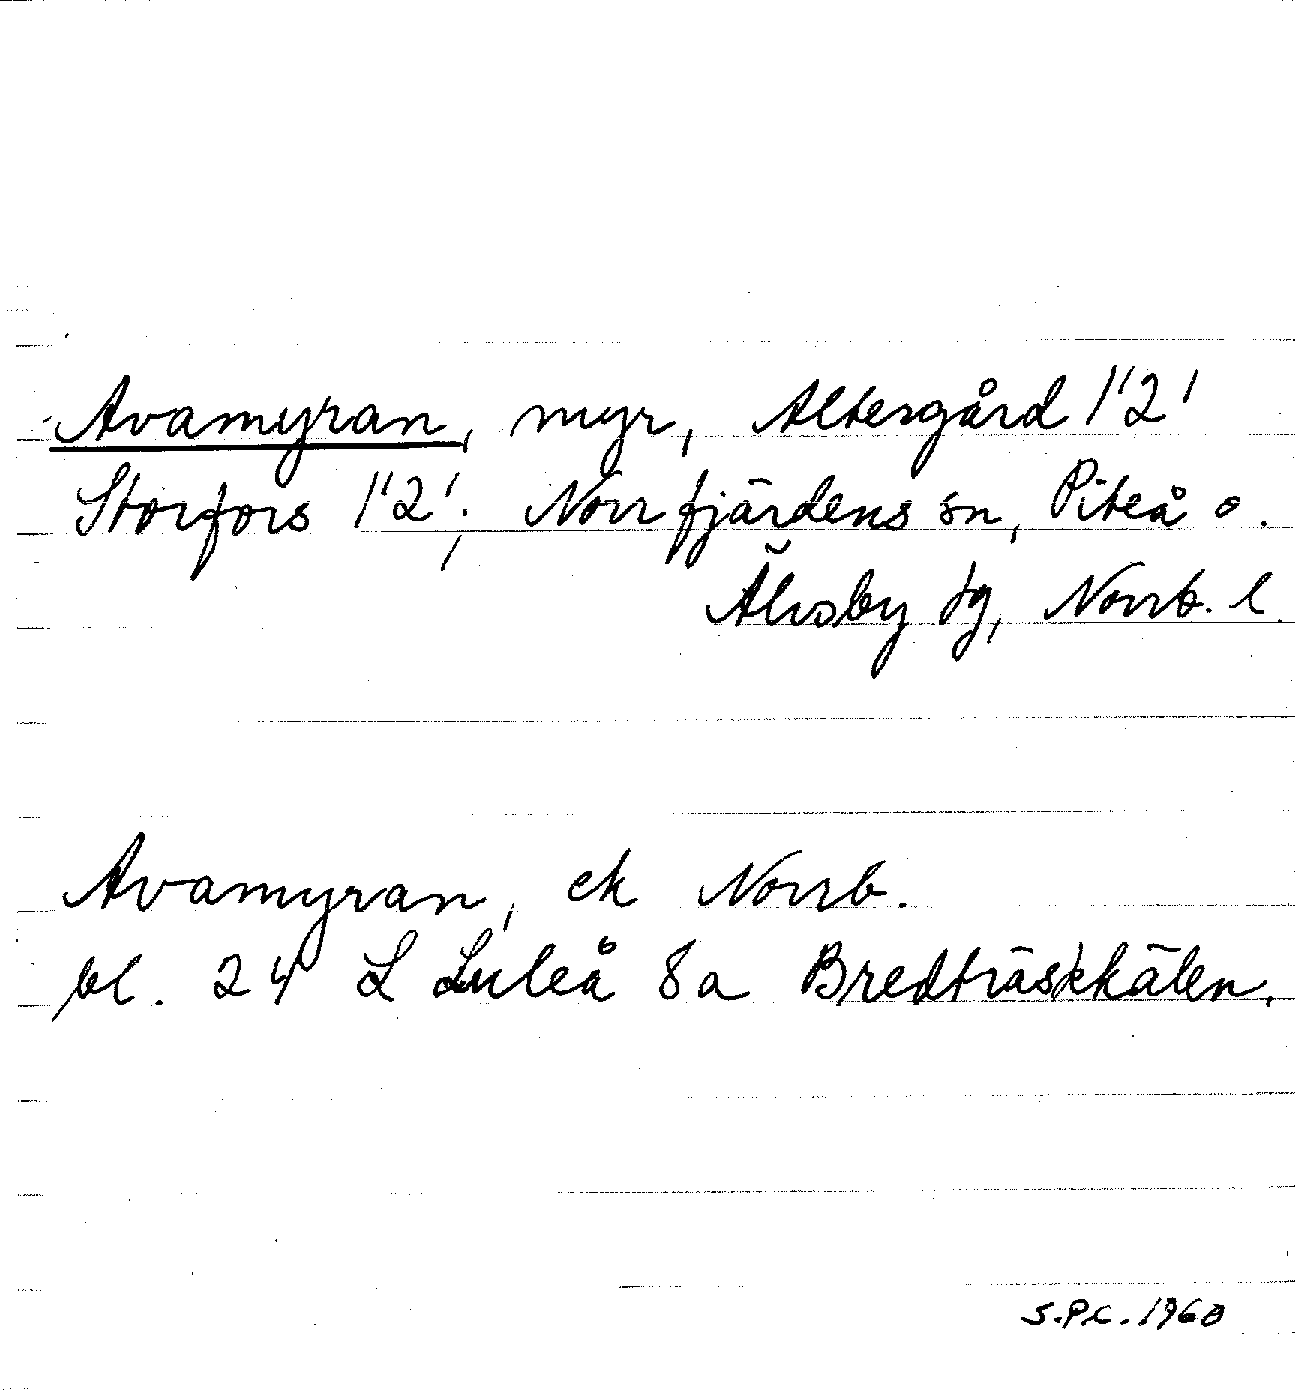 Avamyran, myr, Altersgård 1'2'
Storfors 1'2'; Norrfjärdens sn, Piteå o.
Älvsby tg, Norrb. l
Avamyran, ek Norrb.
bl. 24 L Luleå 8a Bredträskkälen.
S.P.C. 1960